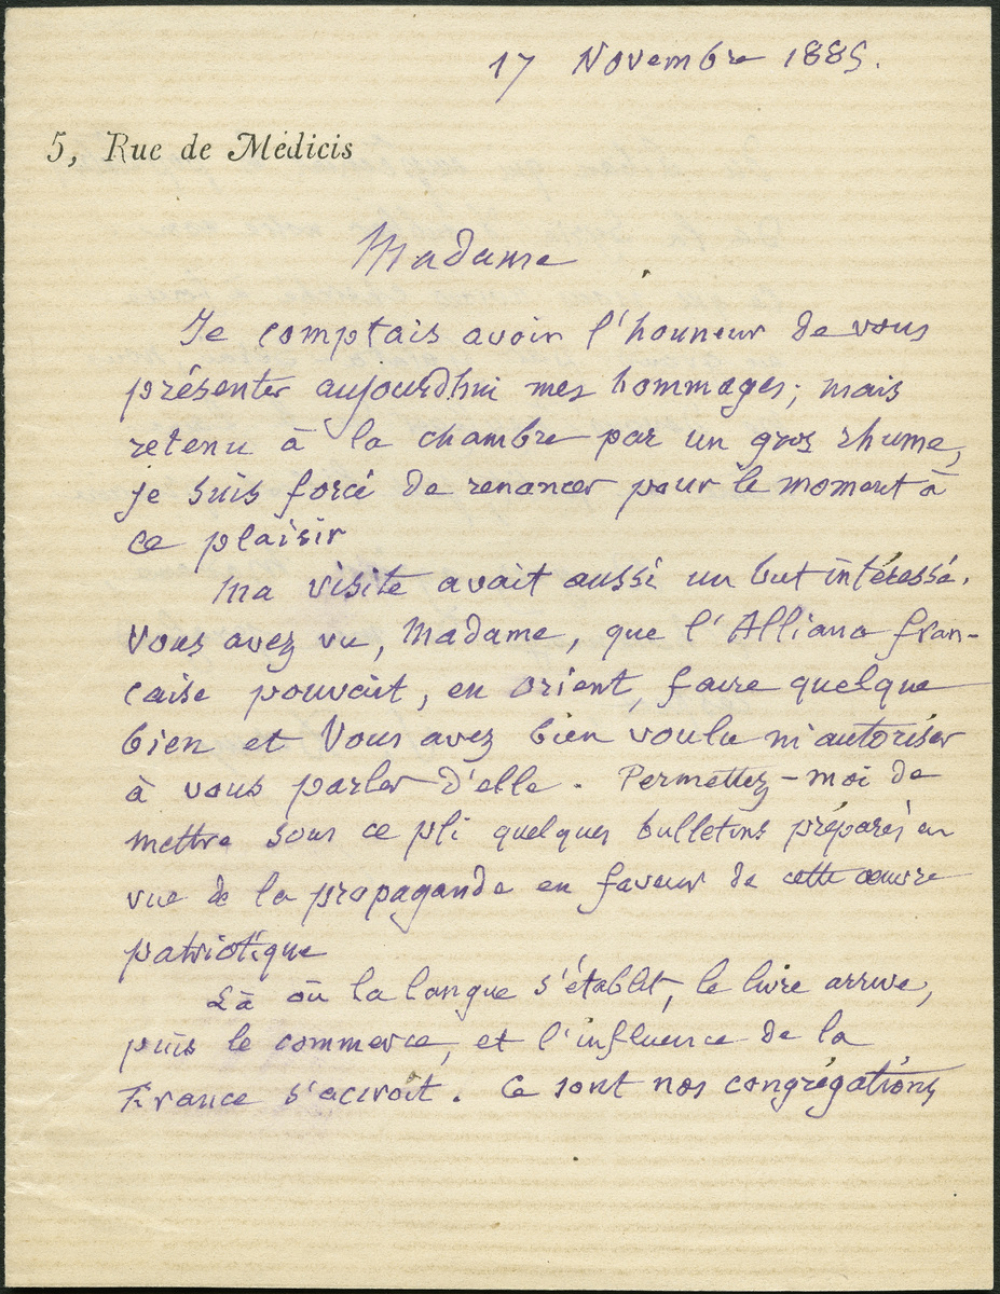 17 Novembre 1885.
5, Rue de Médicis
Madame
Je comptais avoir l'honneur de vous
présenter aujourd'hui mes hommages; mais
retenu à la chambre par un gros rhume,
je suis forcé de renoncer pour le moment à
ce plaisir
Ma visite avait aussi un but intéressé.
Vous avez vu, Madame, que l'Alliance fran-
caise pouvait, en orient, faire quelque
bien et Vous avez bien voulu m'autoriser
à vous parler d'elle. Permettez-moi de
mettre sous ce pli quelques bulletins préparés en
vue de la propagande en faveur de cette œuvre
patriotique
Là où la langue s'établit, le livre arrive,
puis le commerce, et l'influence de la
France s'accroît. Ce sont nos congrégations